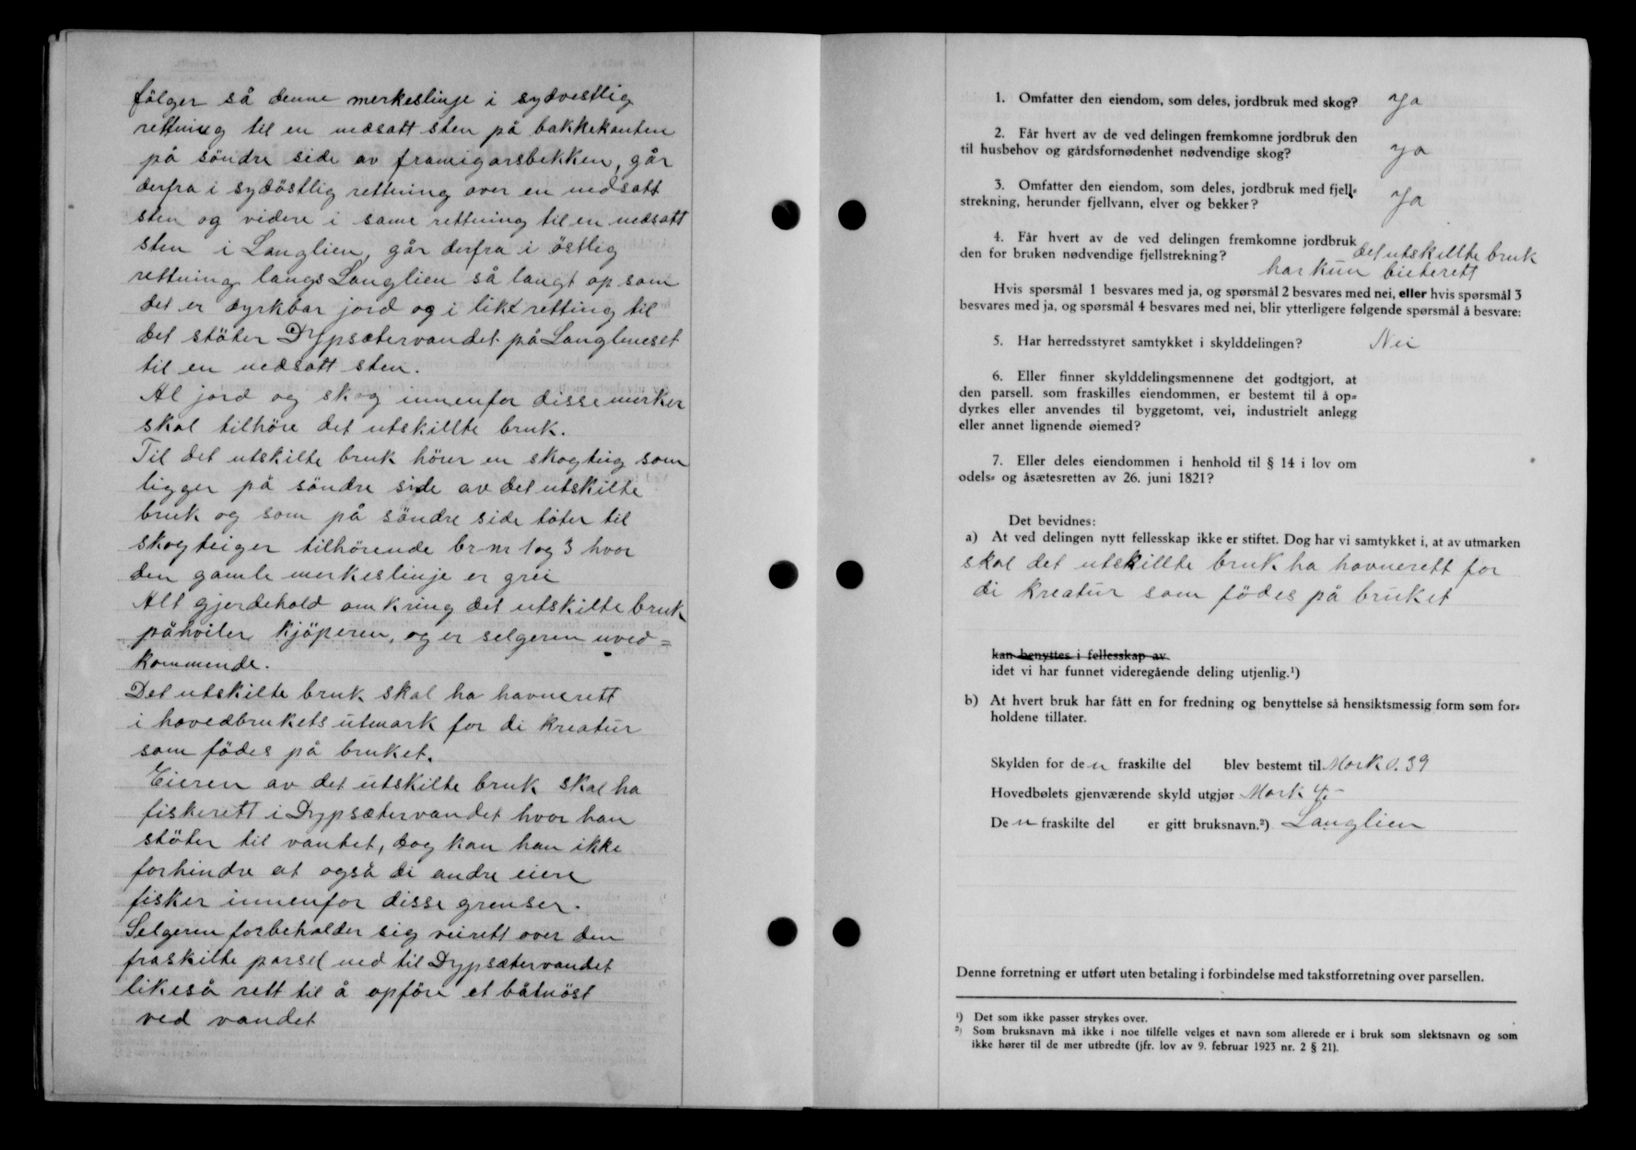 fölger så denne merkeslinje i sydvestlig
rettning til en nedsatt sten på bakkekanten
på söndre side av framigarsbekken, går
derfra i sydöstlig rettning over en nedsatt
sten og videre i same rettning til en nedsatt
sten i Langlien, går derfra i östlig
rettning langs Langlien så langt op som
det er dyrkbar jord og i like retting til
det stöter Drypsætervandet på Langlineset
til en nedsatt sten.
Al jord og skog innenfor disse merker
skal tilhöre det utskillte bruk.
Til det utskilte bruk hörer en skogteig som
ligger på söndre side av det utskilte
bruk og som på söndre side töter til
skogteiger tilhörende br-nr 1 og 3 hvor
den gamle merkeslinje er grei
Alt gjerdehold omkring det utskilte bruk
påhviler kjöperen, og er selgeren uved=
kommende.
Det utskilte bruk skal ha havnerett
i hovedbrukets utmark for di kreatur
som födes på bruket.
Eieren av det utskilte bruk skal ha
fiskerett i Drypsætervandet hvor han
stöter til vantet, dog kan han ikke
forhindre at også di andre eiere
fisker innenfor disse grenser.
Selgeren forbeholder sig veirett over den
fraskilte parsel ned til Drypsætervandet
likeså rett til å opföre et båtnöst
ved vandet
1. Omfatter den eiendom, som deles, jordbruk med skog? Ja
2. Får hvert av de ved delingen fremkomne jordbruk den
til husbehov og gårdsfornødenhet nødvendige skog? Ja
3. Omfatter den eiendom, som deles, jordbruk med fjell-
strekning, herunder fjellvann, elver og bekker? Ja
4. Får hvert av de ved delingen fremkomne jordbruk
den for bruken nødvendige fjellstrekning? det utskillte bruk
har kun beiterett
Hvis spørsmål 1 besvares med ja, og spørsmål 2 besvares med nei, eller hvis spørsmål 3
besvares med ja, og spørsmål 4 besvares med nei, blir ytterligere følgende spørsmål å besvare:
5. Har herredsstyret samtykket i skylddelingen? Nei
6. Eller finner skylddelingsmennene det godtgjort, at
den parsell. som fraskilles eiendommen, er bestemt til å op-
dyrkes eller anvendes til byggetomt, vei, industrielt anlegg
eller annet lignende øiemed?
7. Eller deles eiendommen i henhold til § 14 i lov om
odels- og åsætesretten av 26. juni 1821?
Det bevidnes:
a) At ved delingen nytt fellesskap ikke er stiftet. Dog har vi samtykket i, at av utmarken
skal det utskillte bruk ha havnerett for
di kreatur som födes på bruket
kan benyttes i fellesskap av
idet vi har funnet videregående deling utjenlig.¹)
b) At hvert bruk har fått en for fredning og benyttelse så hensiktsmessig form som for-
holdene tillater.
Skylden for den fraskilte del blev bestemt til Mark 0.39
Hovedbølets gjenværende skyld utgjør Mark 4,-
Den fraskilte del er gitt bruksnavn.²) Langlien
Denne forretning er utført uten betaling i forbindelse med takstforretning over parsellen.
¹) Det som ikke passer strykes over.
²) Som bruksnavn må ikke i noe tilfelle velges et navn som allerede er i bruk som slektsnavn og som
ikke hører til de mer utbredte (jfr. lov av 9. februar 1923 nr. 2 § 21).